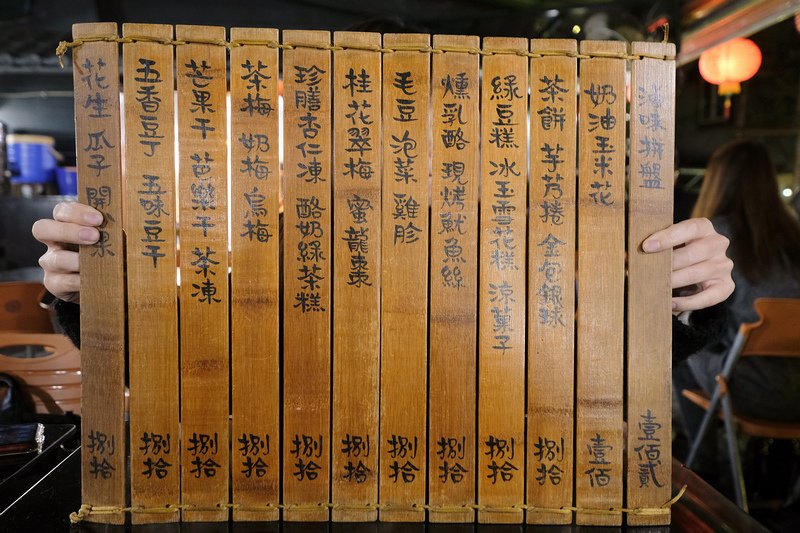 滷味拼盤 壹佰貳
奶油玉米花 壹佰
茶餅 芋芿捲 金包銀球 捌拾
綠豆糕 冰玉雪花糕 涼菓子 捌拾
燻乳酪 現烤魷魚絲 捌拾
毛豆 泡菜 雞胗 捌拾
桂花翠梅 蜜龍棗 捌拾
珍膳杏仁凍 酪奶綠茶糕 捌拾
茶梅 奶梅 烏梅 捌拾
芒果干 芭樂干 茶凍 捌拾
五香豆丁 五味豆干 捌拾
花生 瓜子 開心果 捌拾